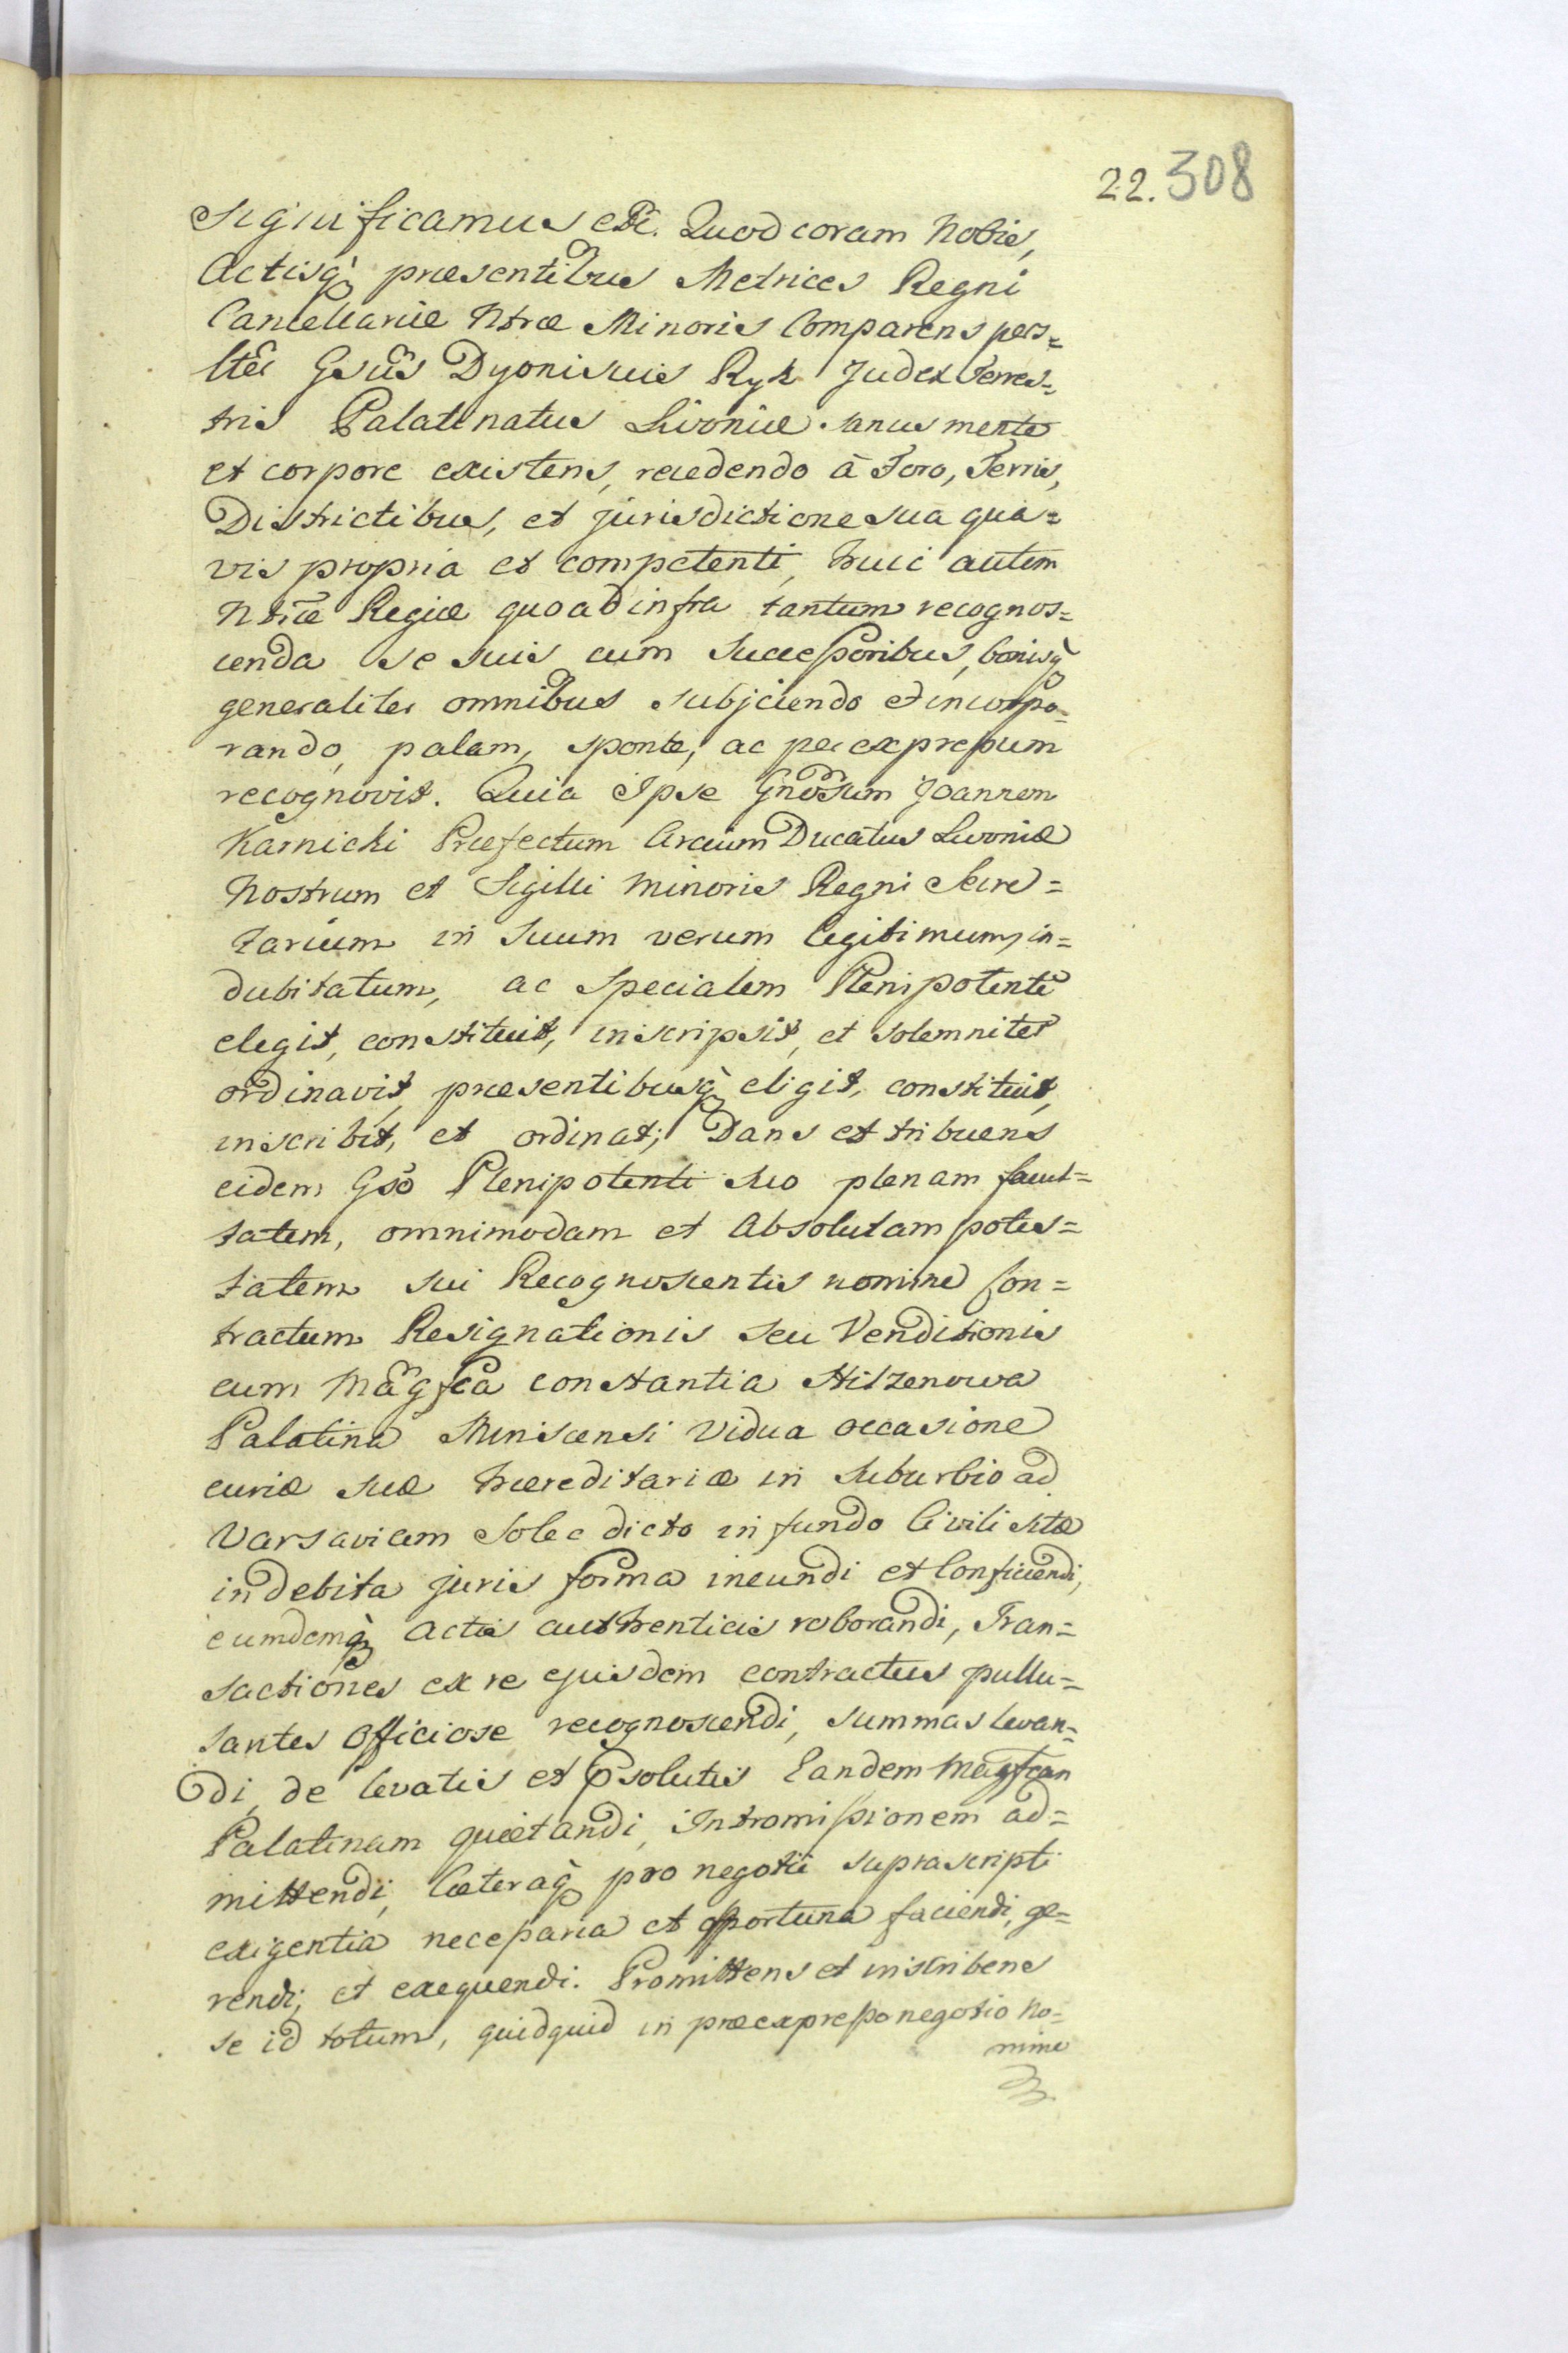 22. 308
Significamus etc. Quod coram Nobis,
Actisq̀ præsentibus Metrices Regni
Cancellariæ Ntræ Minoris Comparens pers=
lter Gsus Dyonisius Ryk Judex Terres=
tris Palatinatus Livoniæ sanus mente
et corpore existens, recedendo à Foro, Terris,
Districtibus, et jurisdictione sua qua=
vis propria et competenti, huic autem
Ntræ Regiæ quoad infra tantum recognos=
cenda se suis cum Successoribus, bonisq̀
generaliter omnibus subjciendo et incorpo=
rando, palam, sponte, ac per expressum
recognovit. Quia Ipse Gnosum Joannem
Karnicki Præfectum Arcium Ducatus Livoniæ
Nostrum et Sigilli Minoris Regni Secre=
tarium in Suum verum legitimum, in=
dubitatum, ac Specialem Plenipotentē
elegit, constituit, inscripsit, et solemniter
ordinavit, præsentibusq̀ eligit, constituit,
inscribit, et ordinat; Dans et tribuens
eidem Gso Plenipotenti suo plenam facul=
tatem, omnimodam et Absolutam potes=
tatem sui Recognoscentis nomine Con=
tractum Resignationis seu Venditionis
cum Magfca Constantia Hilzenowa
Palatina Minscensi Vidua occasione
curiæ suæ hæreditariæ in Suburbio ad
Varsaviam Solec dicto in fundo Civili sitæ
in debita juris forma ineundi et Conficiendi,
eumdemq̀ Actis authenticis roborandi, Tran=
sactiones ex re ejusdem contractus pullu=
lantes Officiose recognoscendi, summas levan=
di, de levatis et psolutis Eandem Magfcan
Palatinam quietandi, Intromissionem ad=
mittendi, Cæteraq̀ pro negotii suprascripti
exigentia necessaria et opportuna faciendi, ge=
rendi, et exequendi. Promittens et inscribens
se id totum, quidquid in præexpresso negotio no=
mine